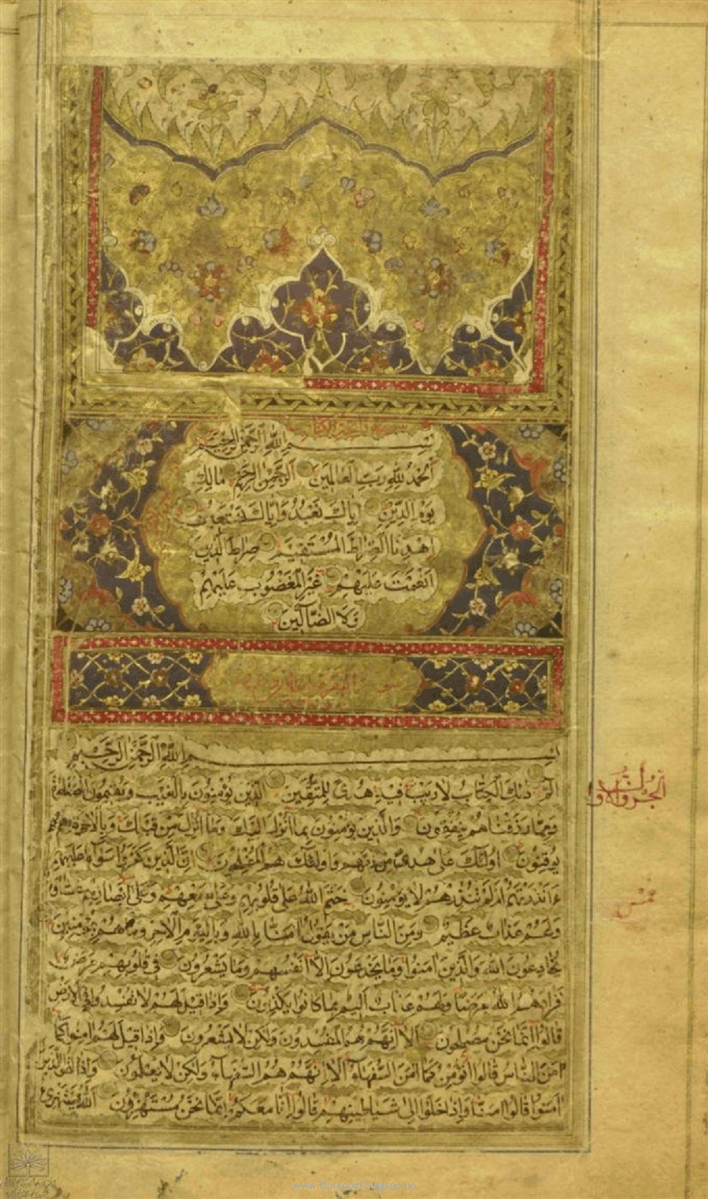 سورة فاتحة الكتاب
بسم الله الرحمن الرحيم
الحمد لله رب العالمين الرحمن الرحيم مالك
يوم الدين اياك نعبد واياك نستعين
اهدنا الصراط المستقيم صراط الذين
انعمت عليهم غير المغضوب عليهم
ولا الضالين
سورة البقرة
بسم الله الرحمن الرحيم
الم ذلك الكتاب لا ريب فيه هدى للمتقين الذين يؤمنون بالغيب ويقيمون الصلوة
ومما رزقناهم ينفقون والذين يؤمنون بما انزل اليك وما انزل من قبلك وبالاخرة هم
يوقنون اولئك على هدى من ربهم واولئك هم المفلحون ان الذين كفروا سواء عليهم
ءانذرتهم ام لم تنذرهم لا يؤمنون ختم الله على قلوبهم وعلى سمعهم وعلى ابصارهم غشاوة
ولهم عذاب عظيم ومن الناس من يقول امنا بالله وباليوم الاخر وما هم بمؤمنين
يخادعون الله والذين امنوا وما يخدعون الا انفسهم وما يشعرون في قلوبهم مرض
فزادهم الله مرضا ولهم عذاب اليم بما كانوا يكذبون واذا قيل لهم لا تفسدوا في الارض
قالوا انما نحن مصلحون الا انهم هم المفسدون ولكن لا يشعرون واذا قيل لهم امنوا كما
امن الناس قالوا انؤمن كما امن السفهاء الا انهم هم السفهاء ولكن لا يعلمون واذا لقوا الذين
امنوا قالوا امنا واذا خلوا الى شياطينهم قالوا انا معكم انما نحن مستهزؤن الله يستهزئ
الجزو الاول